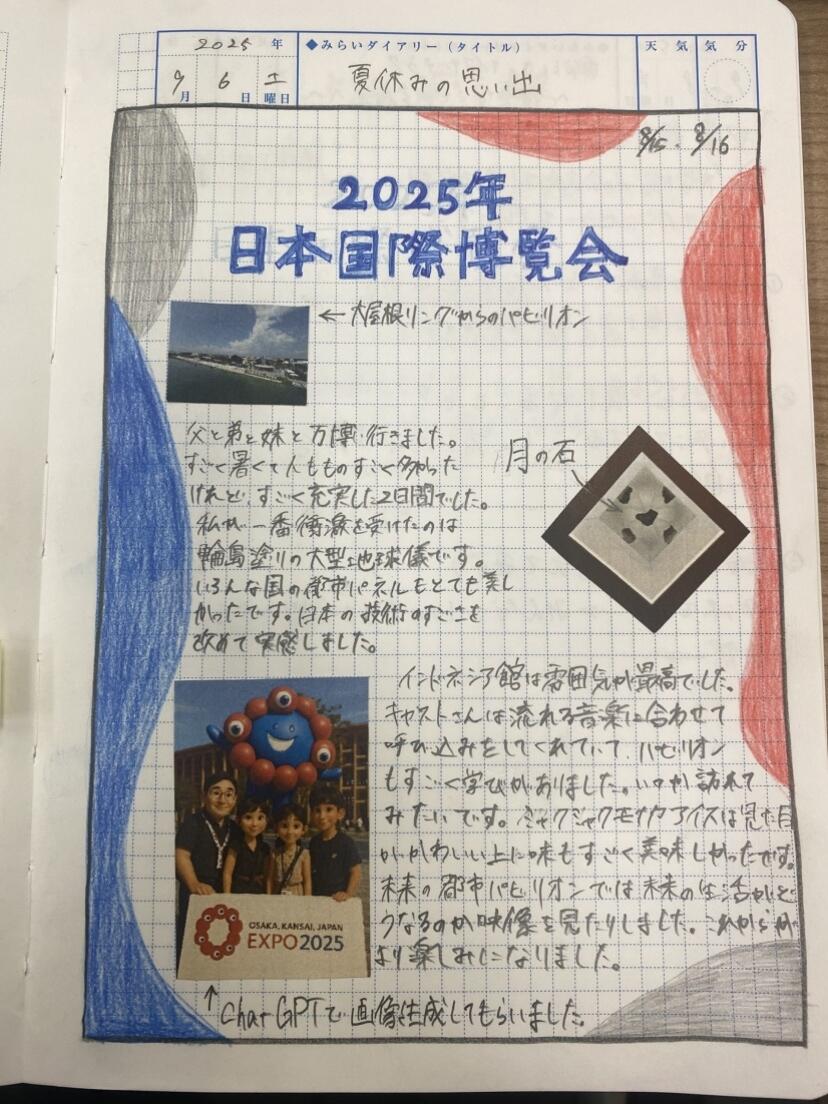 2025 年
9 月 6 日 土 曜日
◆みらいダイアリー（タイトル）
夏休みの思い出
天気
気分
8/15・8/16
2025年
日本国際博覧会
← 大屋根リングからのパビリオン
父と弟と妹と万博行きました。
すごく暑くて人もものすごく多かった
けれど、すごく充実した2日間でした。
私が一番衝激を受けたのは
輪島塗りの大型地球儀です。
いろんな国の都市パネルもとても美し
かったです。日本の技術のすごさを
改めて実感しました。
月の石
インドネシア館は雰囲気が最高でした。
キャストさんは流れる音楽に合わせて
呼び込みをしてくれていて、パビリオン
もすごく学びがありました。いつか訪れて
みたいです。ミャクミャクモナカアイスは見た目
がかわいい上に味もすごく美味しかったです。
未来の都市パビリオンでは未来の生活がど
うなるのか映像を見たりしました。これからが
より楽しみになりました。
OSAKA, KANSAI, JAPAN
EXPO2025
↑ ChatGPTで画像生成してもらいました。